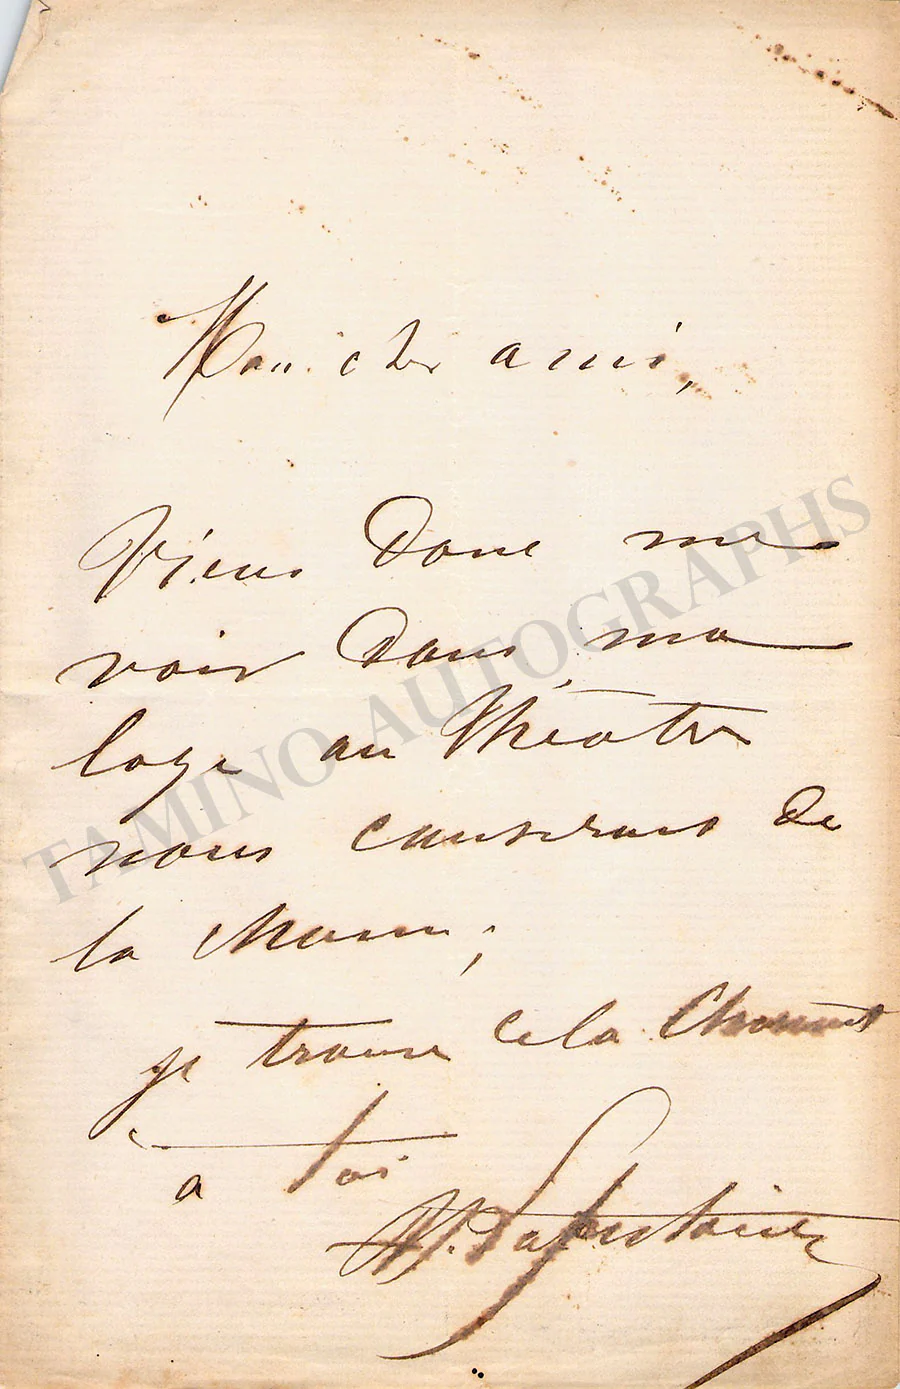 Mon cher ami,
Viens donc me
voir dans ma
loge au Théâtre
nous causerons de
la chose;
je trouve cela Charmant
a toi
Lafontaine
TAMINO AUTOGRAPHS